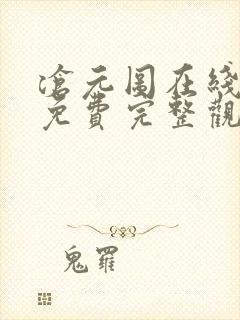 滄元圖在綫
免費完整觀
鬼羅